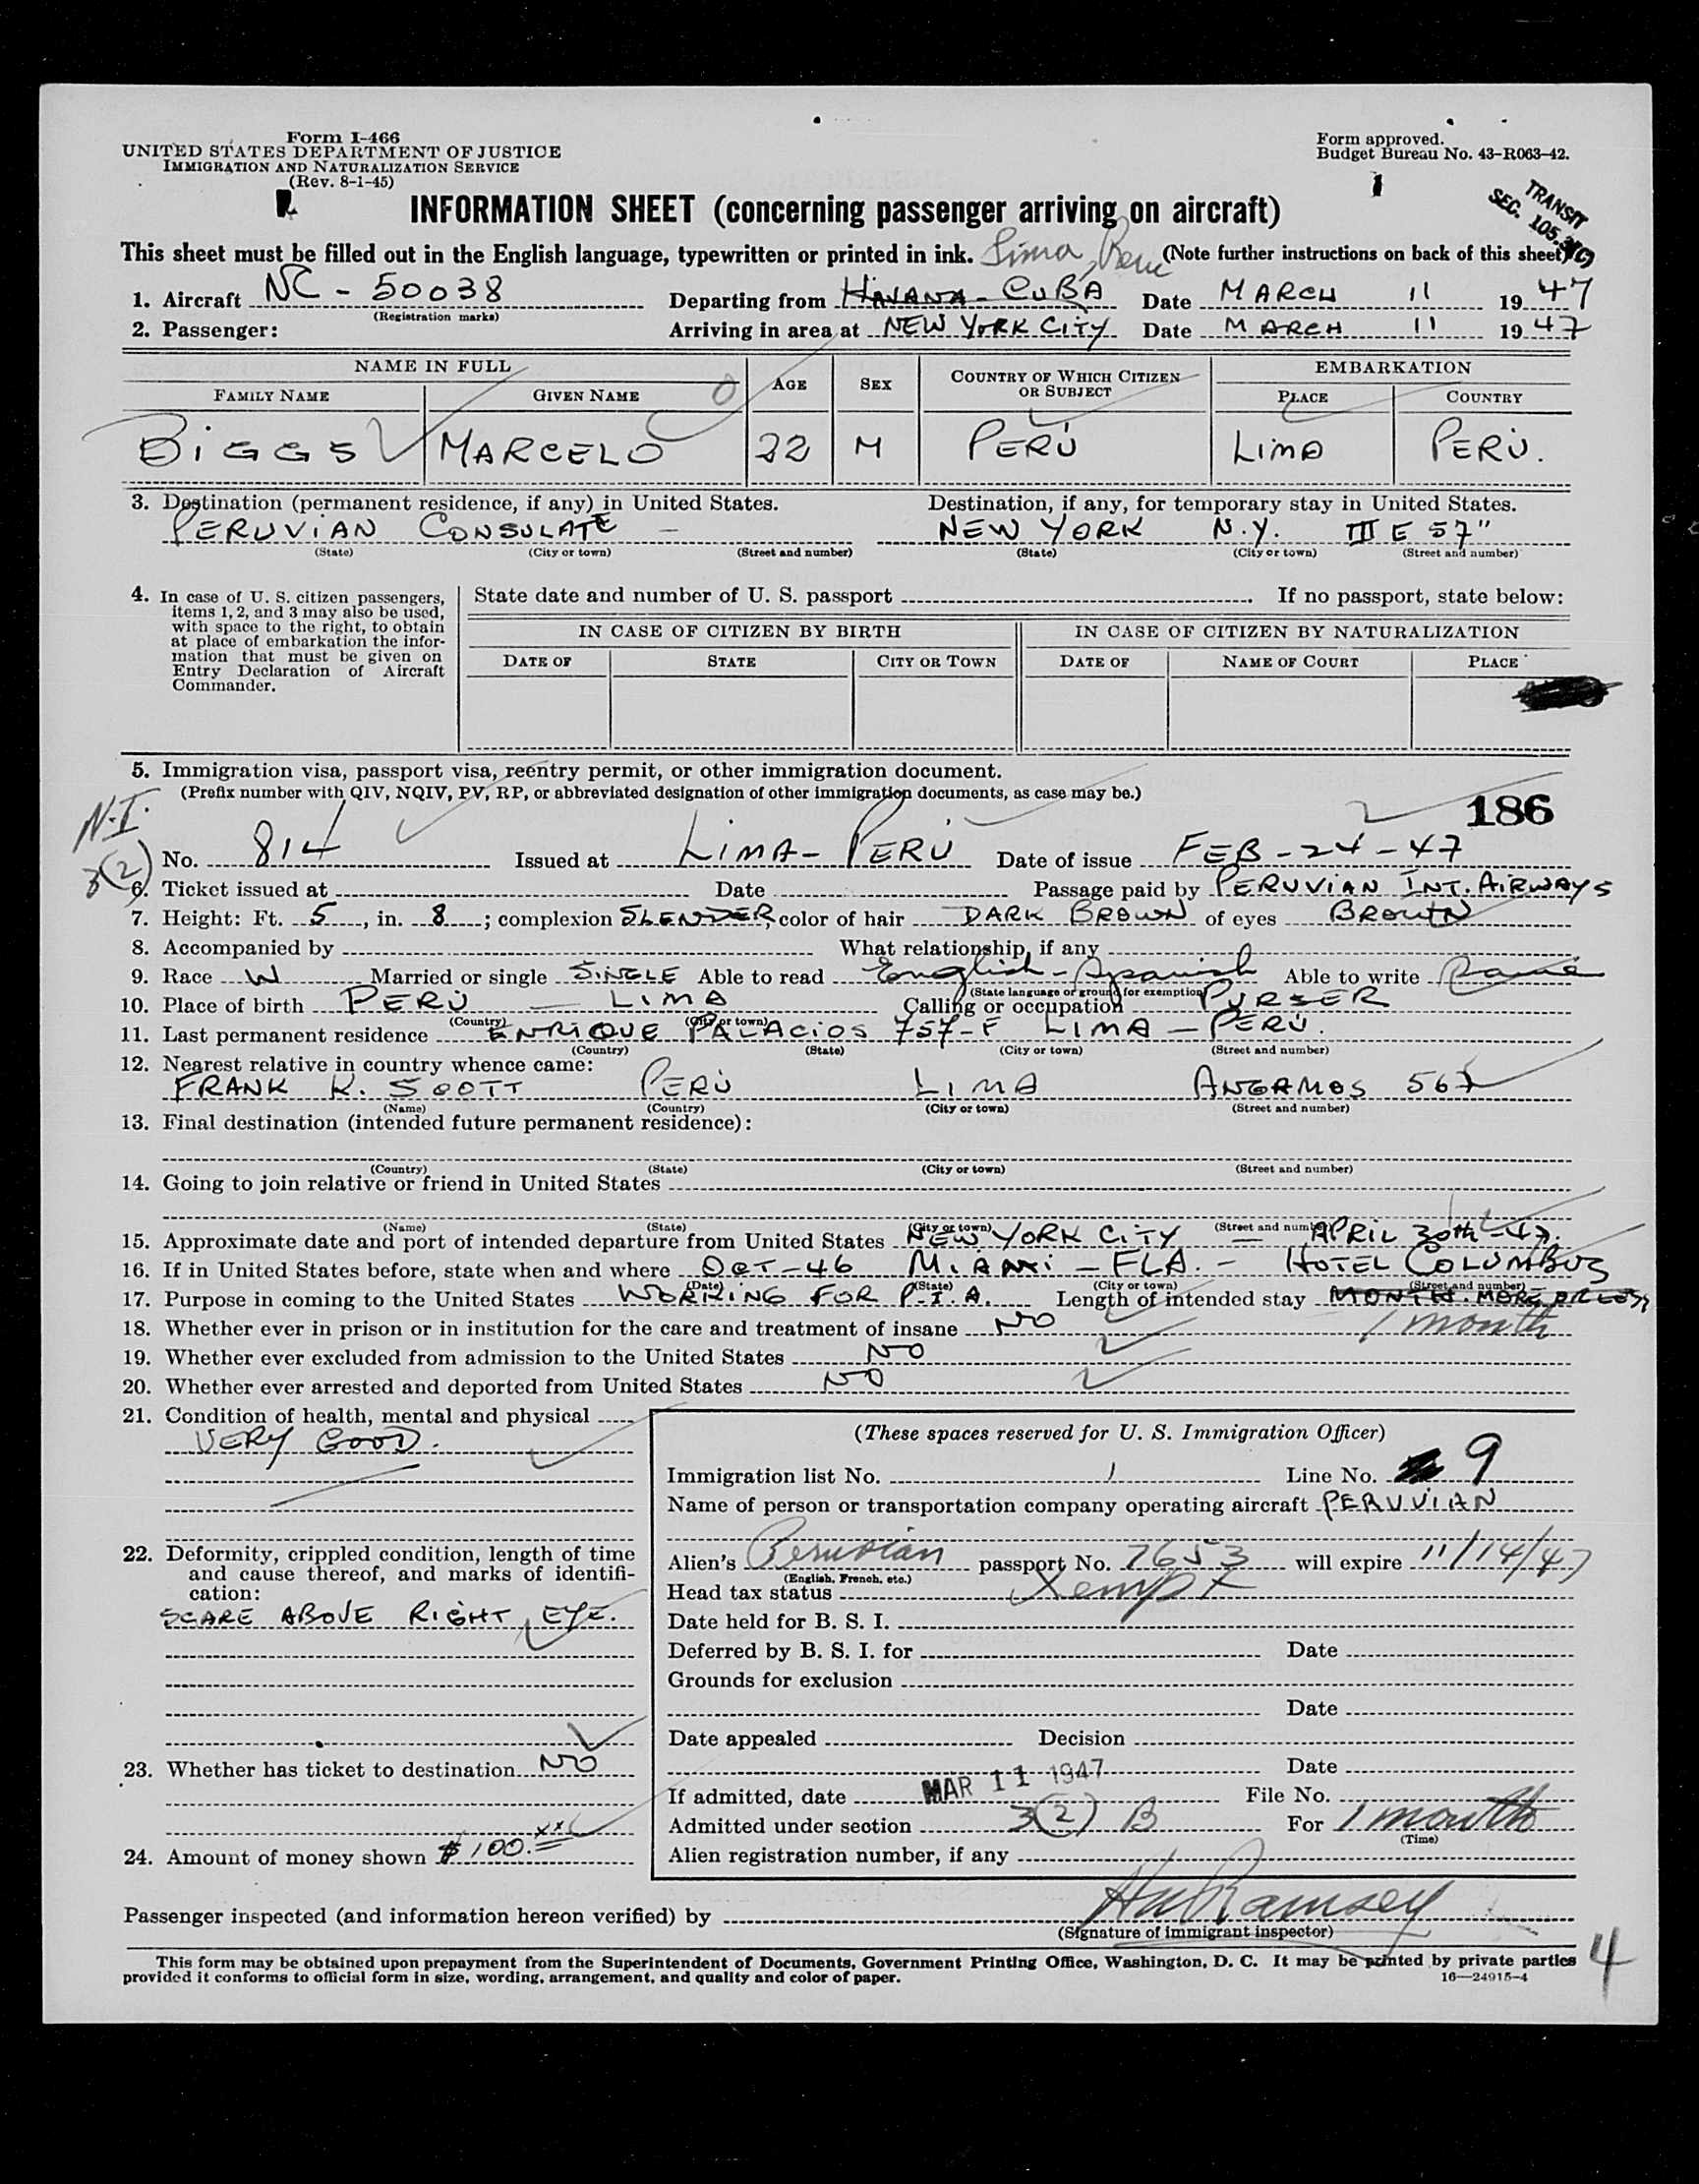 Form I-466
UNITED STATES DEPARTMENT OF JUSTICE
IMMIGRATION AND NATURALIZATION SERVICE
(Rev. 8-1-45)
Form approved.
Budget Bureau No. 43-R063-42.
TRANSIT
SEC. 105.3(C)
INFORMATION SHEET (concerning passenger arriving on aircraft)
This sheet must be filled out in the English language, typewritten or printed in ink. Lima, Peru (Note further instructions on back of this sheet)
1. Aircraft NC - 50038 Departing from HAVANA - CUBA Date MARCH 11 1947
(Registration marks)
2. Passenger: Arriving in area at NEW YORK CITY Date MARCH 11 1947
NAME IN FULL AGE SEX COUNTRY OF WHICH CITIZEN OR SUBJECT EMBARKATION
FAMILY NAME GIVEN NAME PLACE COUNTRY
BIGGS MARCELO 22 M PERÚ LIMA PERÚ.
3. Destination (permanent residence, if any) in United States. Destination, if any, for temporary stay in United States.
PERUVIAN CONSULATE - NEW YORK N.Y. III E 57"
(State) (City or town) (Street and number) (State) (City or town) (Street and number)
4. In case of U. S. citizen passengers, items 1, 2, and 3 may also be used, with space to the right, to obtain at place of embarkation the information that must be given on Entry Declaration of Aircraft Commander.
State date and number of U. S. passport . If no passport, state below:
IN CASE OF CITIZEN BY BIRTH IN CASE OF CITIZEN BY NATURALIZATION
DATE OF STATE CITY OR TOWN DATE OF NAME OF COURT PLACE
5. Immigration visa, passport visa, reentry permit, or other immigration document.
(Prefix number with QIV, NQIV, PV, RP, or abbreviated designation of other immigration documents, as case may be.)
N.I. 186
3(2)
No. 814 Issued at LIMA - PERÚ Date of issue FEB - 24 - 47
6. Ticket issued at Date Passage paid by PERUVIAN INT. AIRWAYS
7. Height: Ft. 5, in. 8; complexion SLENDER, color of hair DARK BROWN of eyes BROWN
8. Accompanied by What relationship, if any
9. Race W Married or single SINGLE Able to read English - Spanish Able to write
(State language or ground for exemption)
10. Place of birth PERÚ - LIMA Calling or occupation PURSER
(Country) (City or town)
11. Last permanent residence ENRIQUE PALACIOS 757-F LIMA - PERÚ.
(Country) (State) (City or town) (Street and number)
12. Nearest relative in country whence came:
FRANK K. SCOTT PERÚ LIMA ANGAMOS 567
(Name) (Country) (City or town) (Street and number)
13. Final destination (intended future permanent residence):
(Country) (State) (City or town) (Street and number)
14. Going to join relative or friend in United States
(Name) (State) (City or town) (Street and number)
15. Approximate date and port of intended departure from United States NEW YORK CITY - APRIL 30th - 47.
16. If in United States before, state when and where OCT - 46 MIAMI - FLA. - HOTEL COLUMBUS
(Date) (State) (City or town) (Street and number)
17. Purpose in coming to the United States WORKING FOR P.I.A. Length of intended stay MONTH. MORE OR LESS
18. Whether ever in prison or in institution for the care and treatment of insane NO 1 month
19. Whether ever excluded from admission to the United States NO
20. Whether ever arrested and deported from United States NO
21. Condition of health, mental and physical
VERY GOOD.
22. Deformity, crippled condition, length of time and cause thereof, and marks of identification:
SCARE ABOVE RIGHT EYE.
23. Whether has ticket to destination NO
24. Amount of money shown $100.xx
(These spaces reserved for U. S. Immigration Officer)
Immigration list No. 1 Line No. 9
Name of person or transportation company operating aircraft PERUVIAN
Alien's Peruvian passport No. 7653 will expire 11/14/47
(English, French, etc.)
Head tax status Xempt
Date held for B. S. I.
Deferred by B. S. I. for Date
Grounds for exclusion
Date
Date appealed Decision
Date
If admitted, date MAR 11 1947 File No.
Admitted under section 3(2) B For 1 month
(Time)
Alien registration number, if any
Passenger inspected (and information hereon verified) by Ramsey
(Signature of immigrant inspector)
This form may be obtained upon prepayment from the Superintendent of Documents, Government Printing Office, Washington, D. C. It may be printed by private parties
provided it conforms to official form in size, wording, arrangement, and quality and color of paper.
16—24915-4
4